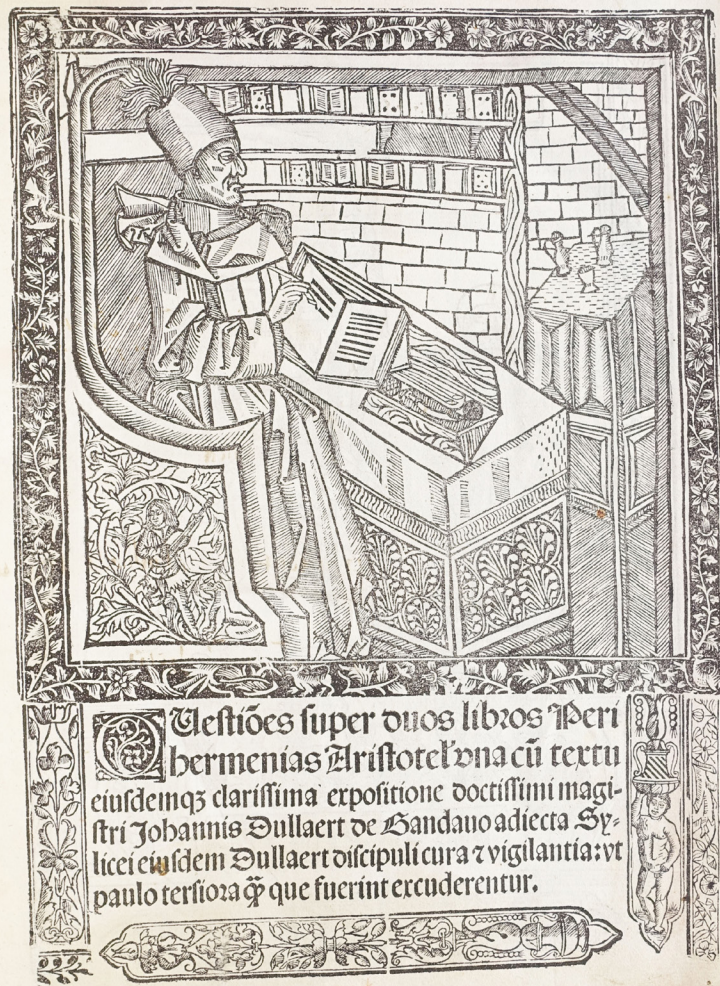 QUestiões super duos libros Peri
hermenias Aristotel' vna cũ textu
eiusdemqꝫ clarissima expositione doctissimi magi-
stri Johannis Dullaert de Gandauo adiecta Sy-
licei eiusdem Dullaert discipuli cura ⁊ vigilantia: vt
paulo tersiora ꝙ̃ que fuerint excuderentur.